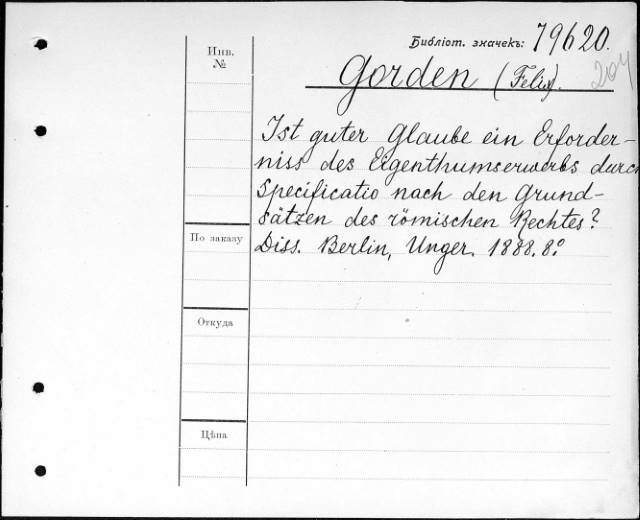 Библіот. значекъ: 79620.
204
Инв.
№
Gorden (Felix).
Ist guter Glaube ein Erforder-
niss des Eigenthumserwerbs durch
Specificatio nach den Grund-
sätzen des römischen Rechtes?
По заказу
Diss. Berlin, Unger. 1888. 8.º
Откуда
Цѣна